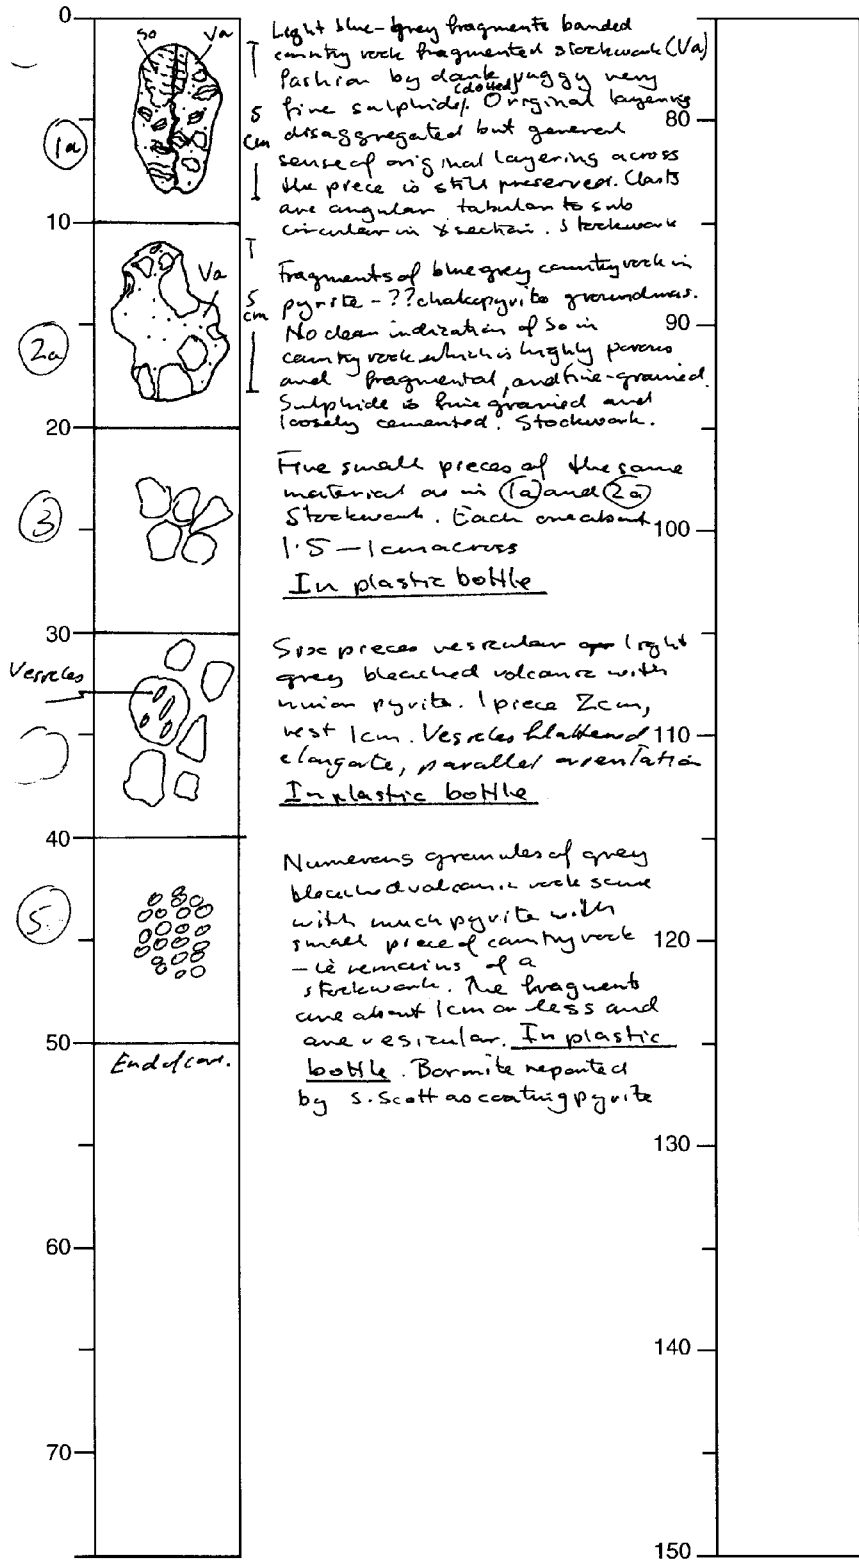 0
So
Va
1a
5
cm
Light blue-grey fragments banded
country rock fragmented stockwork (Va)
fashion by dark vuggy very
(dotted)
fine sulphide. Original layering
disaggregated but general
sense of original layering across
the piece is still preserved. Clasts
are angular tabular to sub
circular in xsection. Stockwork
80
10
Va
2a
5
cm
Fragments of blue grey country rock in
pyrite - ??chalcopyrite groundmass.
No clear indication of So in
country rock which is highly porous
and fragmental, and fine-grained.
Sulphide is fine grained and
loosely cemented. Stockwork.
90
20
3
Five small pieces of the same
material as in 1a and 2a
Stockwork. Each one about
1.5 - 1cm across
In plastic bottle
100
30
Vesicles
Six pieces vesicular light
grey bleached volcanic with
minor pyrite. 1 piece 2cm,
rest 1cm. Vesicles flattened
elongate, parallel orientation
In plastic bottle
110
40
5
Numerous granules of grey
bleached volcanic rock some
with much pyrite with
small piece of country rock
- ie remains of a
stockwork. The fragments
are about 1cm or less and
are vesicular. In plastic
bottle. Bornite reported
by S. Scott as coating pyrite
120
50
End of core.
130
60
140
70
150